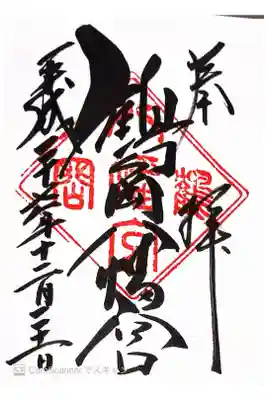 奉拝
鶴岡八幡宮
平成二十六年十二月
CamScanner でスキャン